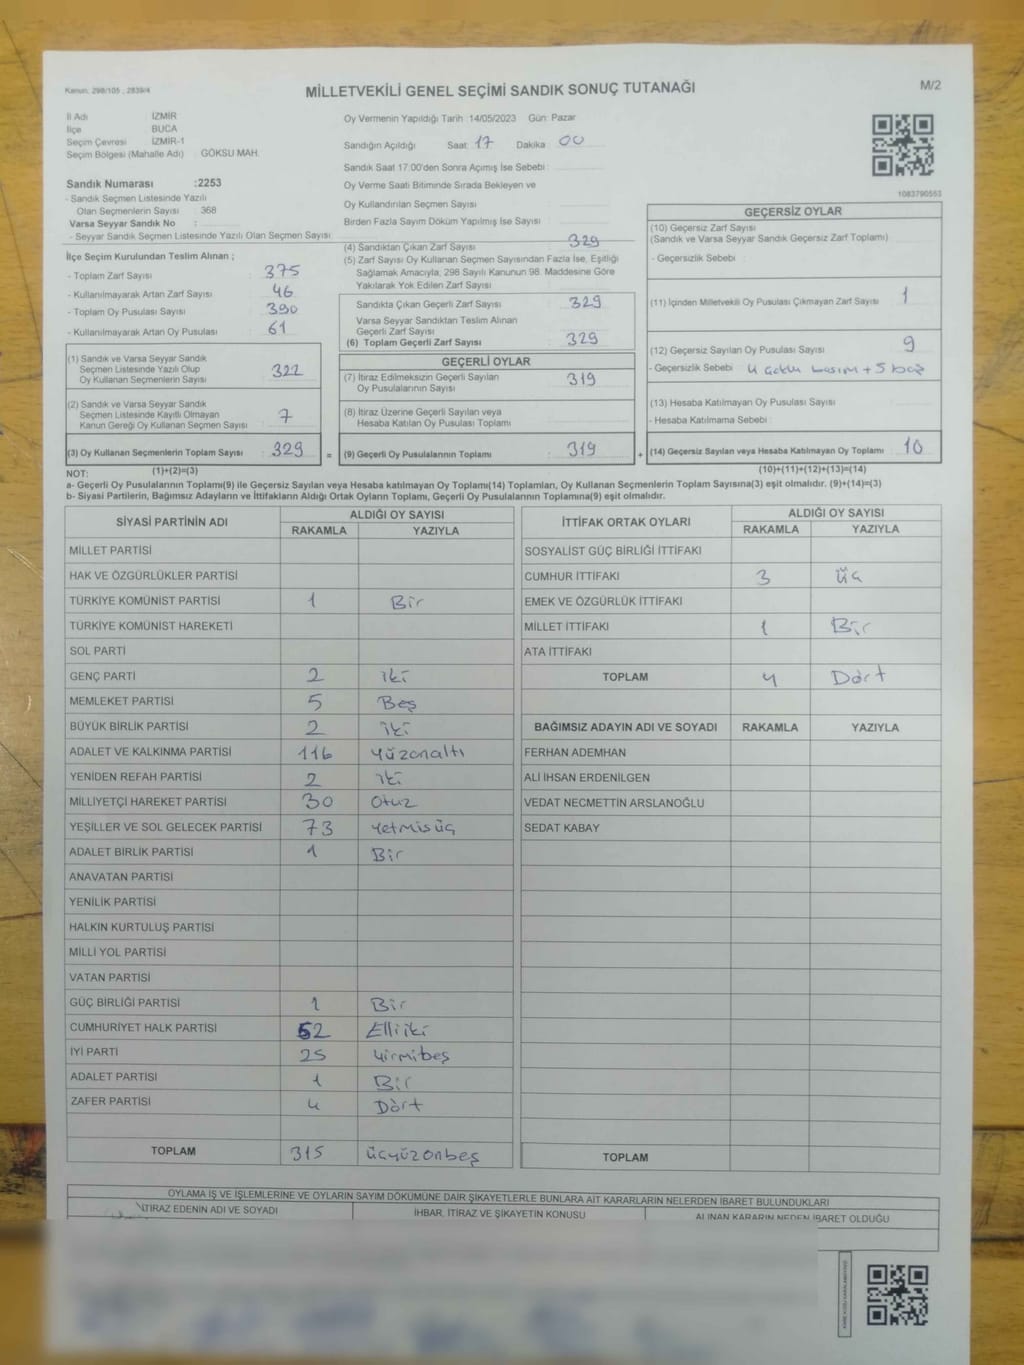 Kanun, 298/105 ; 2839/4
MİLLETVEKİLİ GENEL SEÇİMİ SANDIK SONUÇ TUTANAĞI
M/2
İl Adı : İZMİR
İlçe : BUCA
Seçim Çevresi : İZMİR-1
Seçim Bölgesi (Mahalle Adı) : GÖKSU MAH.
Sandık Numarası :2253
- Sandık Seçmen Listesinde Yazılı
Olan Seçmenlerin Sayısı : 368
Varsa Seyyar Sandık No :
- Seyyar Sandık Seçmen Listesinde Yazılı Olan Seçmen Sayısı :
İlçe Seçim Kurulundan Teslim Alınan ;
- Toplam Zarf Sayısı : 375
- Kullanılmayarak Artan Zarf Sayısı : 46
- Toplam Oy Pusulası Sayısı : 390
- Kullanılmayarak Artan Oy Pusulası : 61
(1) Sandık ve Varsa Seyyar Sandık
Seçmen Listesinde Yazılı Olup
Oy Kullanan Seçmenlerin Sayısı : 322
(2) Sandık ve Varsa Seyyar Sandık
Seçmen Listesinde Kayıtlı Olmayan
Kanun Gereği Oy Kullanan Seçmen Sayısı : 7
(3) Oy Kullanan Seçmenlerin Toplam Sayısı : 329 =
(1)+(2)=(3)
Oy Vermenin Yapıldığı Tarih :14/05/2023 Gün: Pazar
Sandığın Açıldığı Saat: 17 Dakika: 00
Sandık Saat 17:00'den Sonra Açımış İse Sebebi :
Oy Verme Saati Bitiminde Sırada Bekleyen ve
Oy Kullandırılan Seçmen Sayısı :
Birden Fazla Sayım Döküm Yapılmış İse Sayısı :
(4) Sandıktan Çıkan Zarf Sayısı : 329
(5) Zarf Sayısı Oy Kullanan Seçmen Sayısından Fazla İse, Eşitliği
Sağlamak Amacıyla, 298 Sayılı Kanunun 98. Maddesine Göre
Yakılarak Yok Edilen Zarf Sayısı :
Sandıkta Çıkan Geçerli Zarf Sayısı : 329
Varsa Seyyar Sandıktan Teslim Alınan
Geçerli Zarf Sayısı :
(6) Toplam Geçerli Zarf Sayısı : 329
GEÇERLİ OYLAR
(7) İtiraz Edilmeksizin Geçerli Sayılan
Oy Pusulalarının Sayısı : 319
(8) İtiraz Üzerine Geçerli Sayılan veya
Hesaba Katılan Oy Pusulası Toplamı :
(9) Geçerli Oy Pusulalarının Toplamı : 319 +
1083790553
GEÇERSİZ OYLAR
(10) Geçersiz Zarf Sayısı :
(Sandık ve Varsa Seyyar Sandık Geçersiz Zarf Toplamı)
- Geçersizlik Sebebi :
(11) İçinden Milletvekili Oy Pusulası Çıkmayan Zarf Sayısı : 1
(12) Geçersiz Sayılan Oy Pusulası Sayısı : 9
- Geçersizlik Sebebi : 4 basım + 5 boş
(13) Hesaba Katılmayan Oy Pusulası Sayısı :
- Hesaba Katılmama Sebebi :
(14) Geçersiz Sayılan veya Hesaba Katılmayan Oy Toplamı : 10
(10)+(11)+(12)+(13)=(14)
NOT:
a- Geçerli Oy Pusulalarının Toplamı(9) ile Geçersiz Sayılan veya Hesaba katılmayan Oy Toplamı(14) Toplamları, Oy Kullanan Seçmenlerin Toplam Sayısına(3) eşit olmalıdır. (9)+(14)=(3)
b- Siyasi Partilerin, Bağımsız Adayların ve İttifakların Aldığı Ortak Oyların Toplamı, Geçerli Oy Pusulalarının Toplamına(9) eşit olmalıdır.
SİYASİ PARTİNİN ADI ALDIĞI OY SAYISI
RAKAMLA YAZIYLA
MİLLET PARTİSİ
HAK VE ÖZGÜRLÜKLER PARTİSİ
TÜRKİYE KOMÜNİST PARTİSİ 1 Bir
TÜRKİYE KOMÜNİST HAREKETİ
SOL PARTİ
GENÇ PARTİ 2 iki
MEMLEKET PARTİSİ 5 Beş
BÜYÜK BİRLİK PARTİSİ 2 iki
ADALET VE KALKINMA PARTİSİ 116 Yüzonaltı
YENİDEN REFAH PARTİSİ 2 iki
MİLLİYETÇİ HAREKET PARTİSİ 30 Otuz
YEŞİLLER VE SOL GELECEK PARTİSİ 73 Yetmisüç
ADALET BİRLİK PARTİSİ 1 Bir
ANAVATAN PARTİSİ
YENİLİK PARTİSİ
HALKIN KURTULUŞ PARTİSİ
MİLLİ YOL PARTİSİ
VATAN PARTİSİ
GÜÇ BİRLİĞİ PARTİSİ 1 Bir
CUMHURİYET HALK PARTİSİ 52 Elliiki
İYİ PARTİ 25 Yirmibeş
ADALET PARTİSİ 1 Bir
ZAFER PARTİSİ 4 Dört
TOPLAM 315 üçyüzonbeş
İTTİFAK ORTAK OYLARI ALDIĞI OY SAYISI
RAKAMLA YAZIYLA
SOSYALİST GÜÇ BİRLİĞİ İTTİFAKI
CUMHUR İTTİFAKI 3 üç
EMEK VE ÖZGÜRLÜK İTTİFAKI
MİLLET İTTİFAKI 1 Bir
ATA İTTİFAKI
TOPLAM 4 Dört
BAĞIMSIZ ADAYIN ADI VE SOYADI RAKAMLA YAZIYLA
FERHAN ADEMHAN
ALİ İHSAN ERDENİLGEN
VEDAT NECMETTİN ARSLANOĞLU
SEDAT KABAY
TOPLAM
OYLAMA İŞ VE İŞLEMLERİNE VE OYLARIN SAYIM DÖKÜMÜNE DAİR ŞİKAYETLERLE BUNLARA AİT KARARLARIN NELERDEN İBARET BULUNDUKLARI
İTİRAZ EDENİN ADI VE SOYADI İHBAR, İTİRAZ VE ŞİKAYETİN KONUSU ALINAN KARARIN NEDEN İBARET OLDUĞU